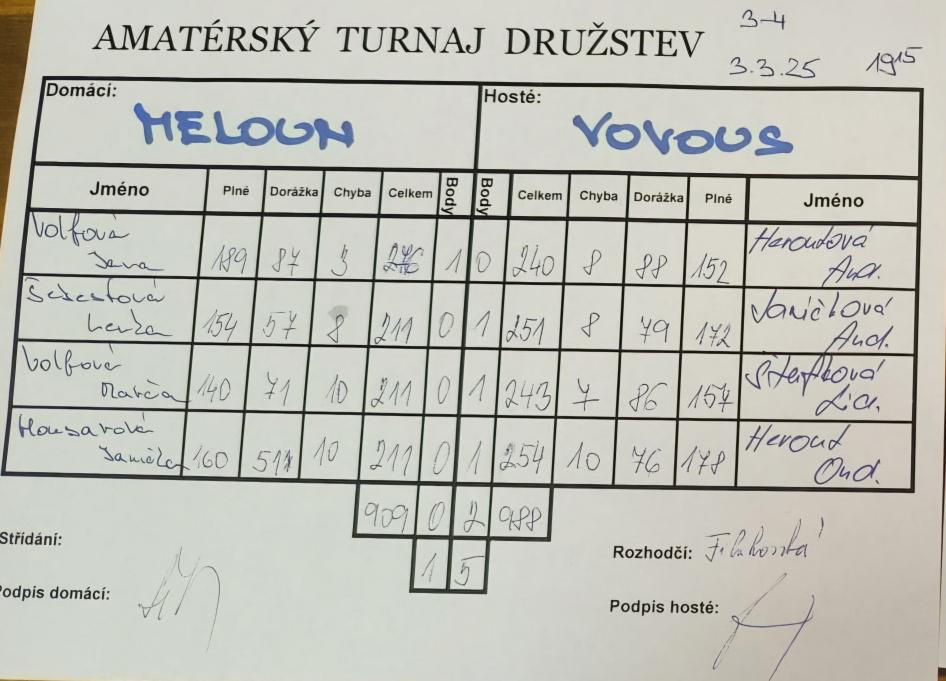 3-4
AMATÉRSKÝ TURNAJ DRUŽSTEV
3.3.25 1915
Domácí: Hosté:
MELOUN VOVOUS
Jméno Plné Dorážka Chyba Celkem Body Body Celkem Chyba Dorážka Plné Jméno
Volfová 189 87 3 276 1 0 240 8 88 152 Heroutová
Jana And.
154 57 8 211 0 1 251 8 79 172 Janičková
Lenka And.
Volfová 140 71 10 211 0 1 243 7 86 157
Lid.
160 51 10 211 0 1 254 10 76 178 Herout
Ond.
909 0 2 988
1 5
Střídání:
Rozhodčí:
Podpis domácí:
Podpis hosté: